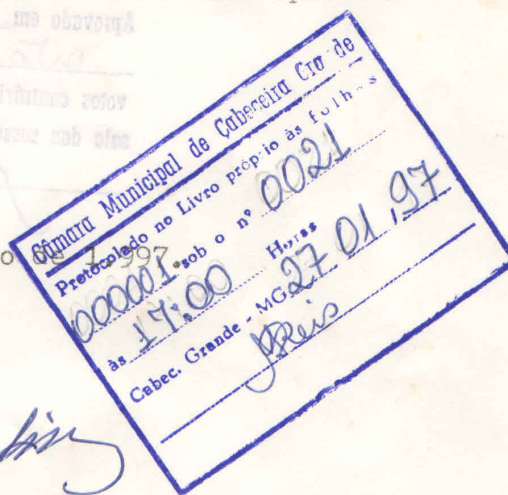 Câmara Municipal de Cabeceira Grande
Protocolado no Livro próprio às folhas
000001 sob o nº 0021
às 17:00 Horas
Cabec. Grande - MG 27 01 97
Reis
o de 1.997.
Aprovado em
votos